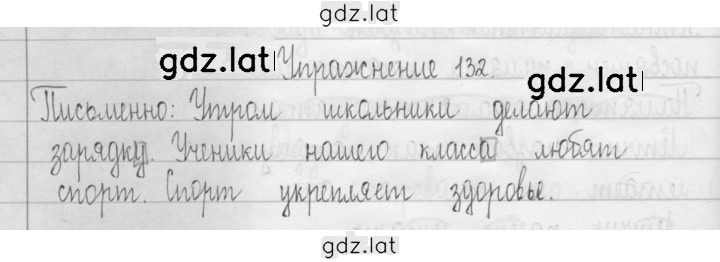 gdz.lat
gdz.lat Упражнение 132. gdz.lat
Письменно: Утром школьники делают
зарядку. Ученики нашего класса любят
спорт. Спорт укрепляет здоровье.
gdz.lat